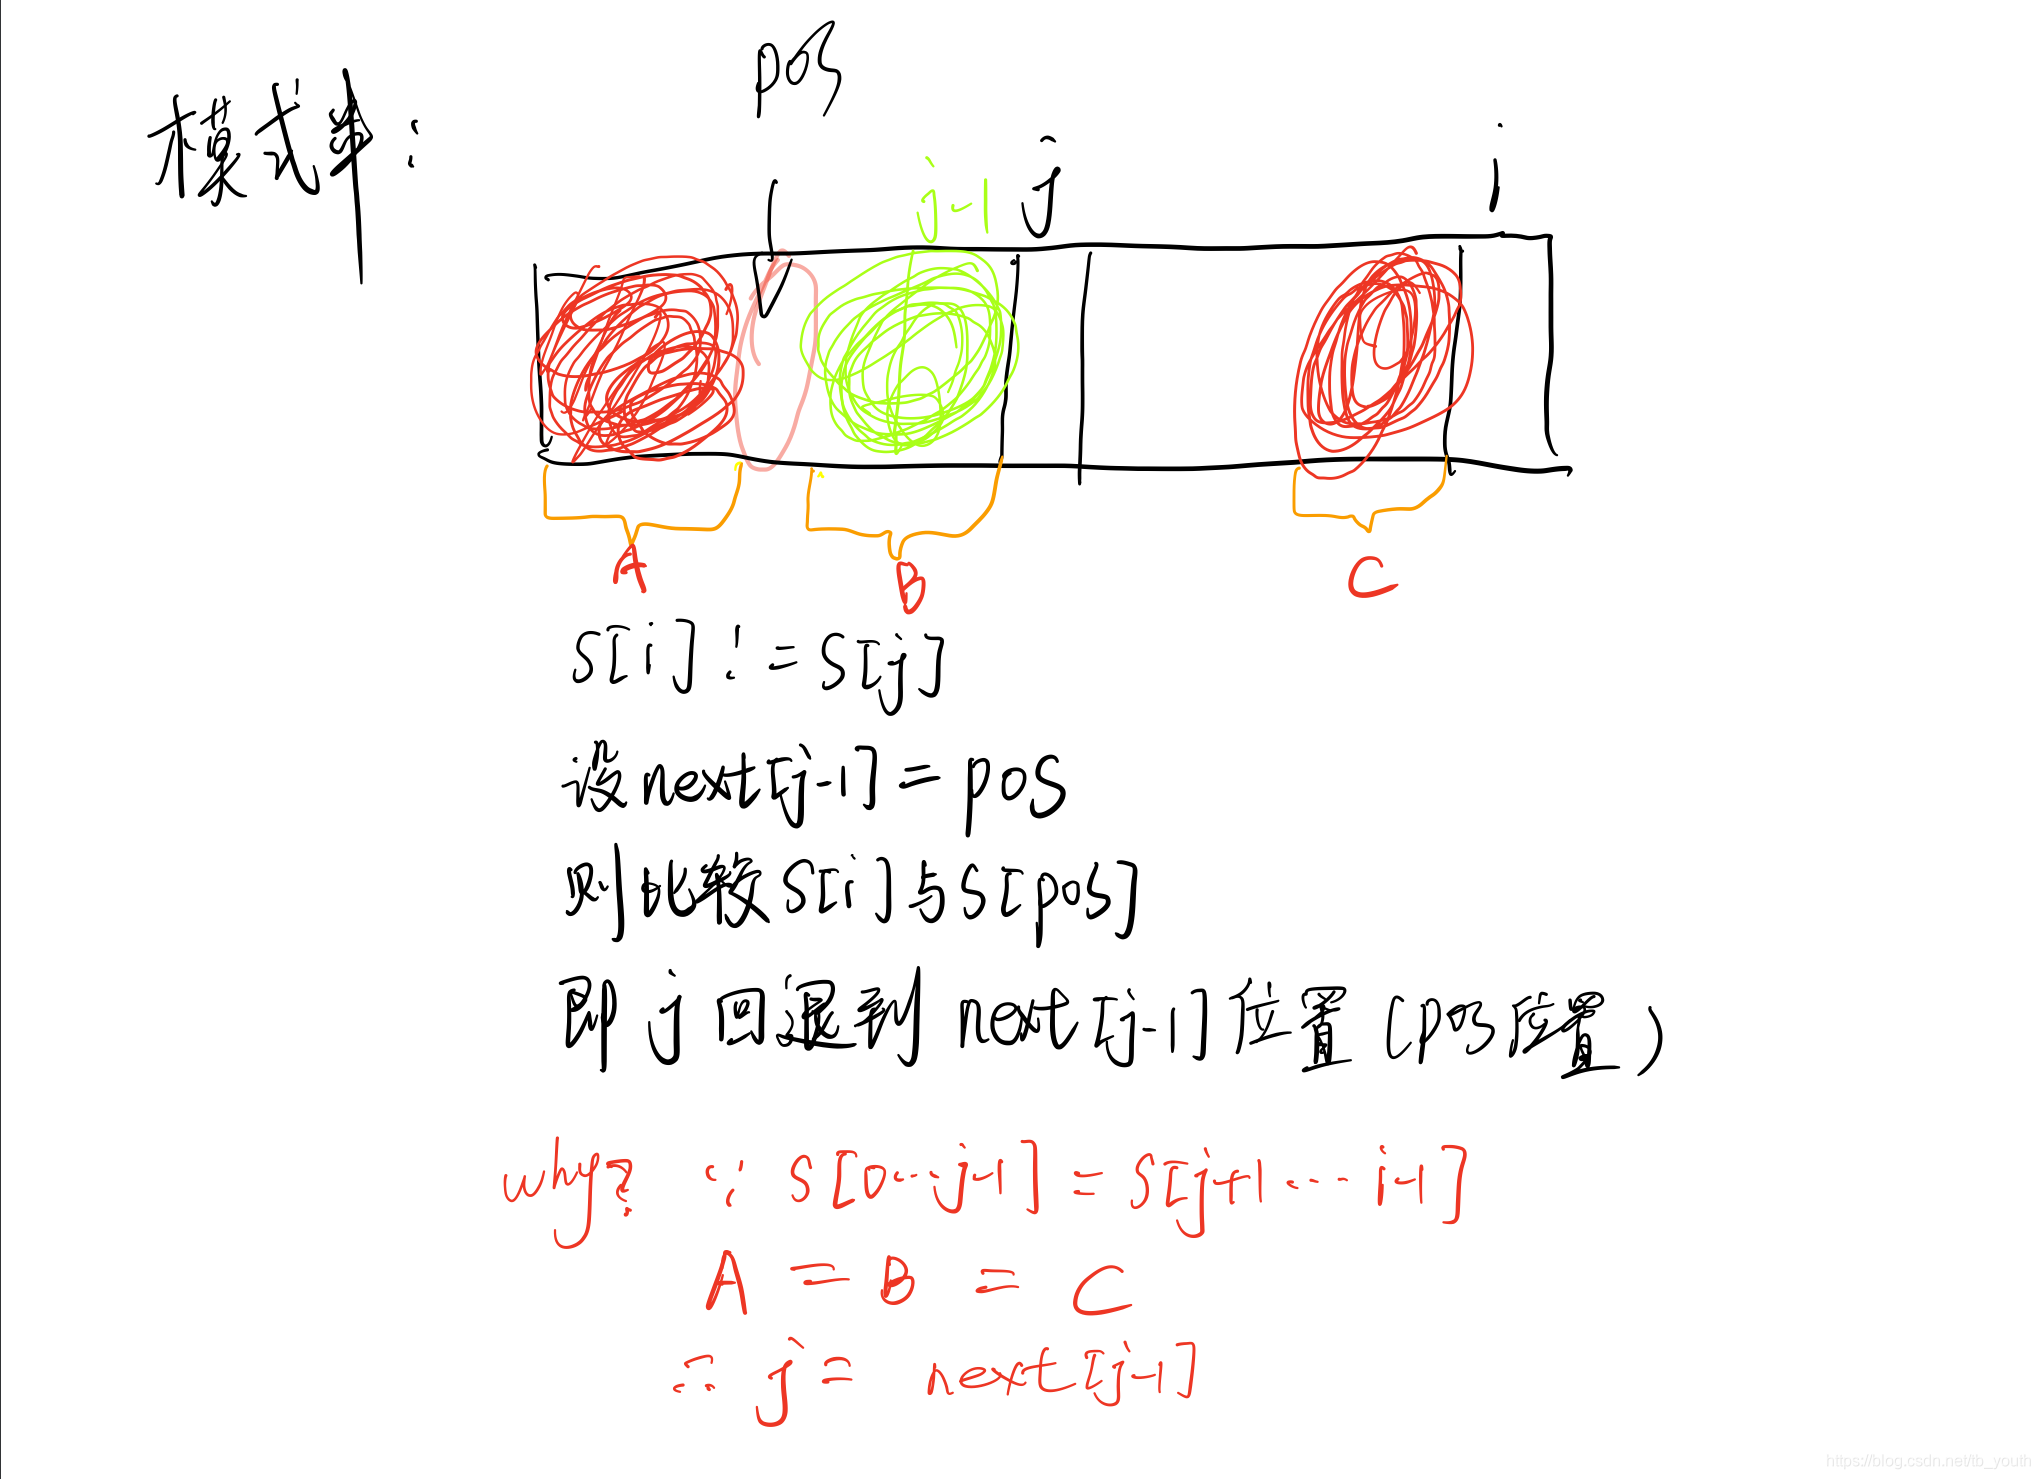 pos
模式串:
j-1 j i
A B C
S[i] != S[j]
设next[j-1] = pos
则比较S[i]与S[pos]
即j回退到next[j-1]位置(pos位置)
why? ∵ S[0...j-1] = S[j+1...i-1]
A = B = C
∴ j = next[j-1]
https://blog.csdn.net/tb_youth